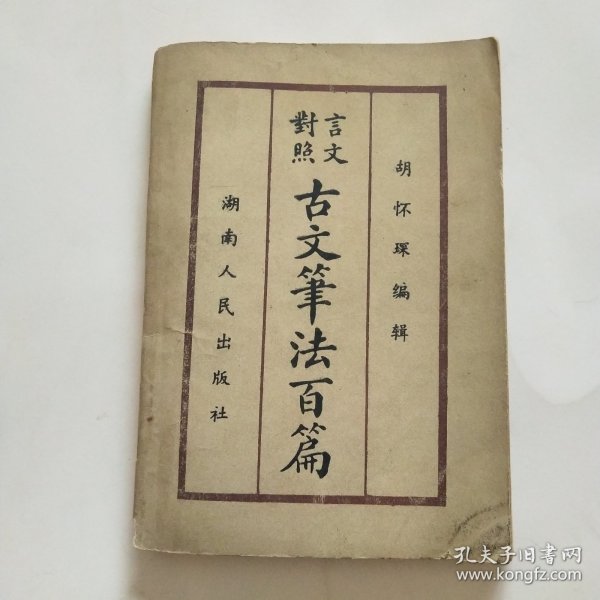 胡怀琛编辑
言文
對照
古文筆法百篇
湖南人民出版社
孔夫子旧书网
www.kongfz.com